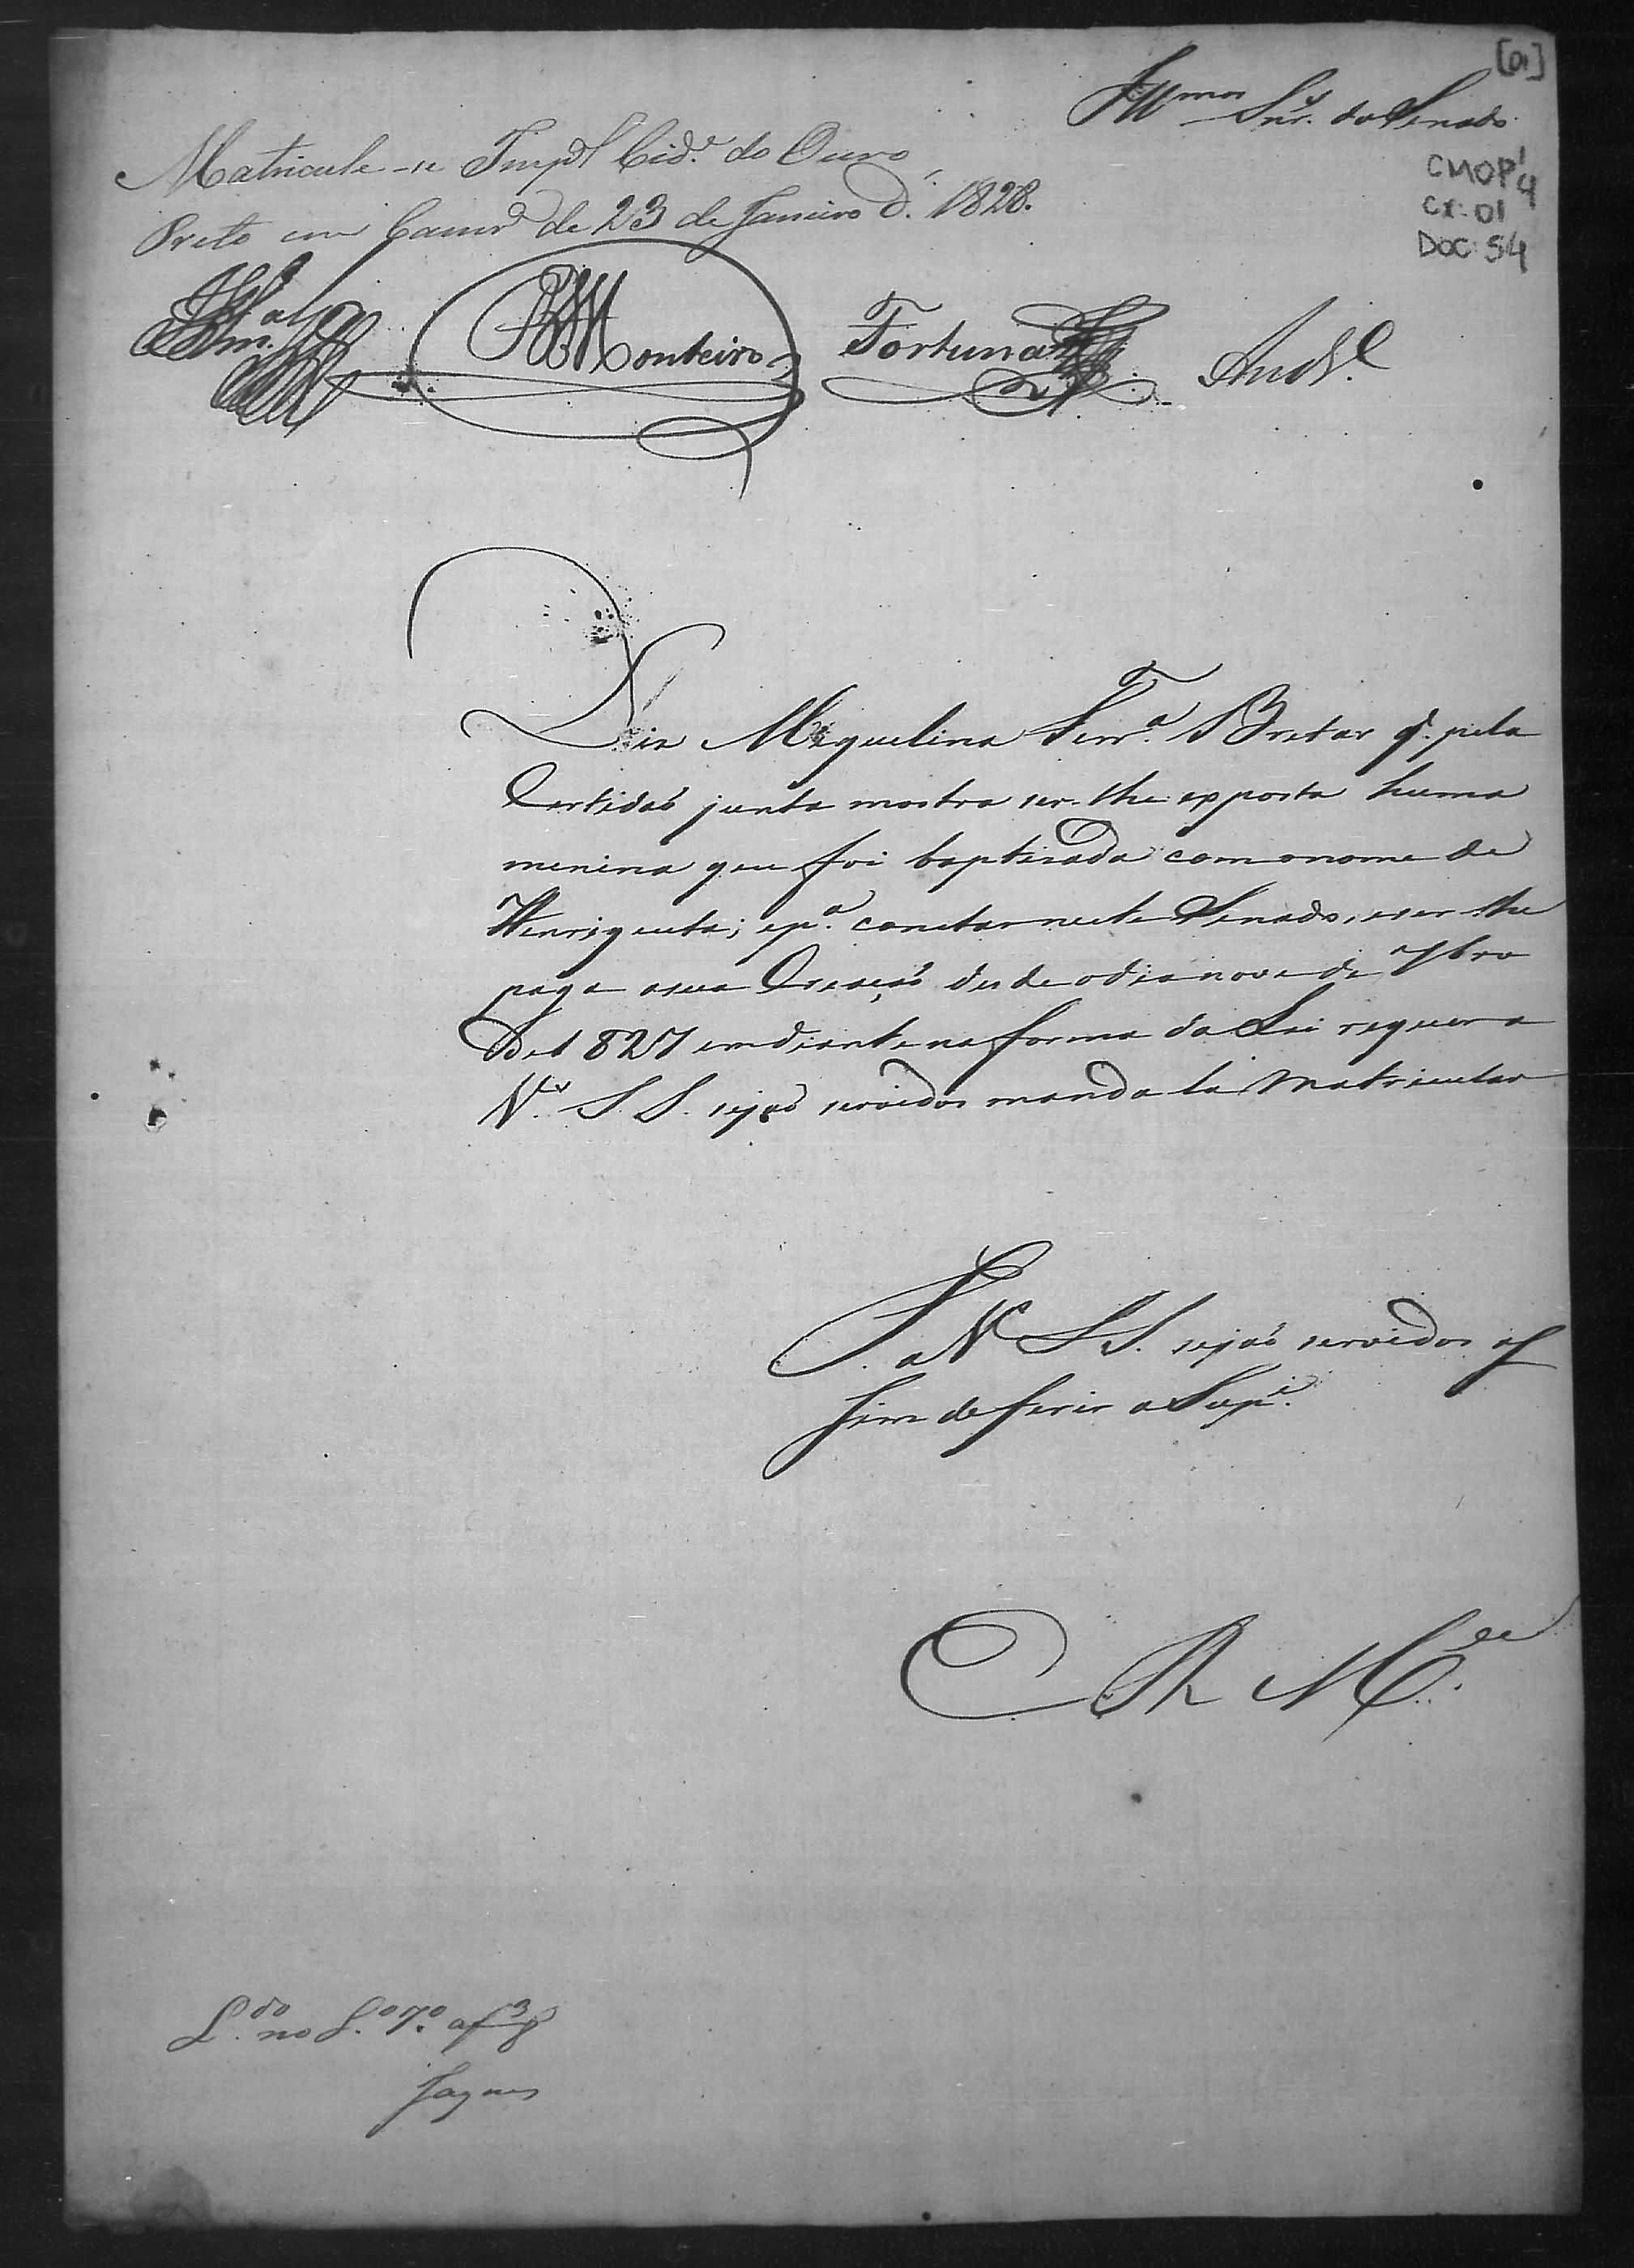 [01]
Illmos Snrs. do Senado
CMOP 1/4
CX: 01
DOC: 54
Matricule-se Impl Cide. do Ouro
Preto em Camra de 23 de Janeiro d. 1828.
Monteiro Fortunato Andre.
Diz Miquelina Ferra. Bretas q. pela
Certidaõ junta mostra ser-lhe exposta huma
menina que foi baptizada com o nome de
Henriqueta; e pa. constar neste Senado, e ser lhe
paga a sua Creaçaõ des de o dia nove de 7bro
De 1827 em diante na forma da Lei requer a
Vas. S. S. sejaõ servidos manda la Matricular
P. a Vas S S. sejaõ servidos as
sim deferir a Supe.
E R Mce.
Ldo. no Lo. 7o. a f 38
Jaques